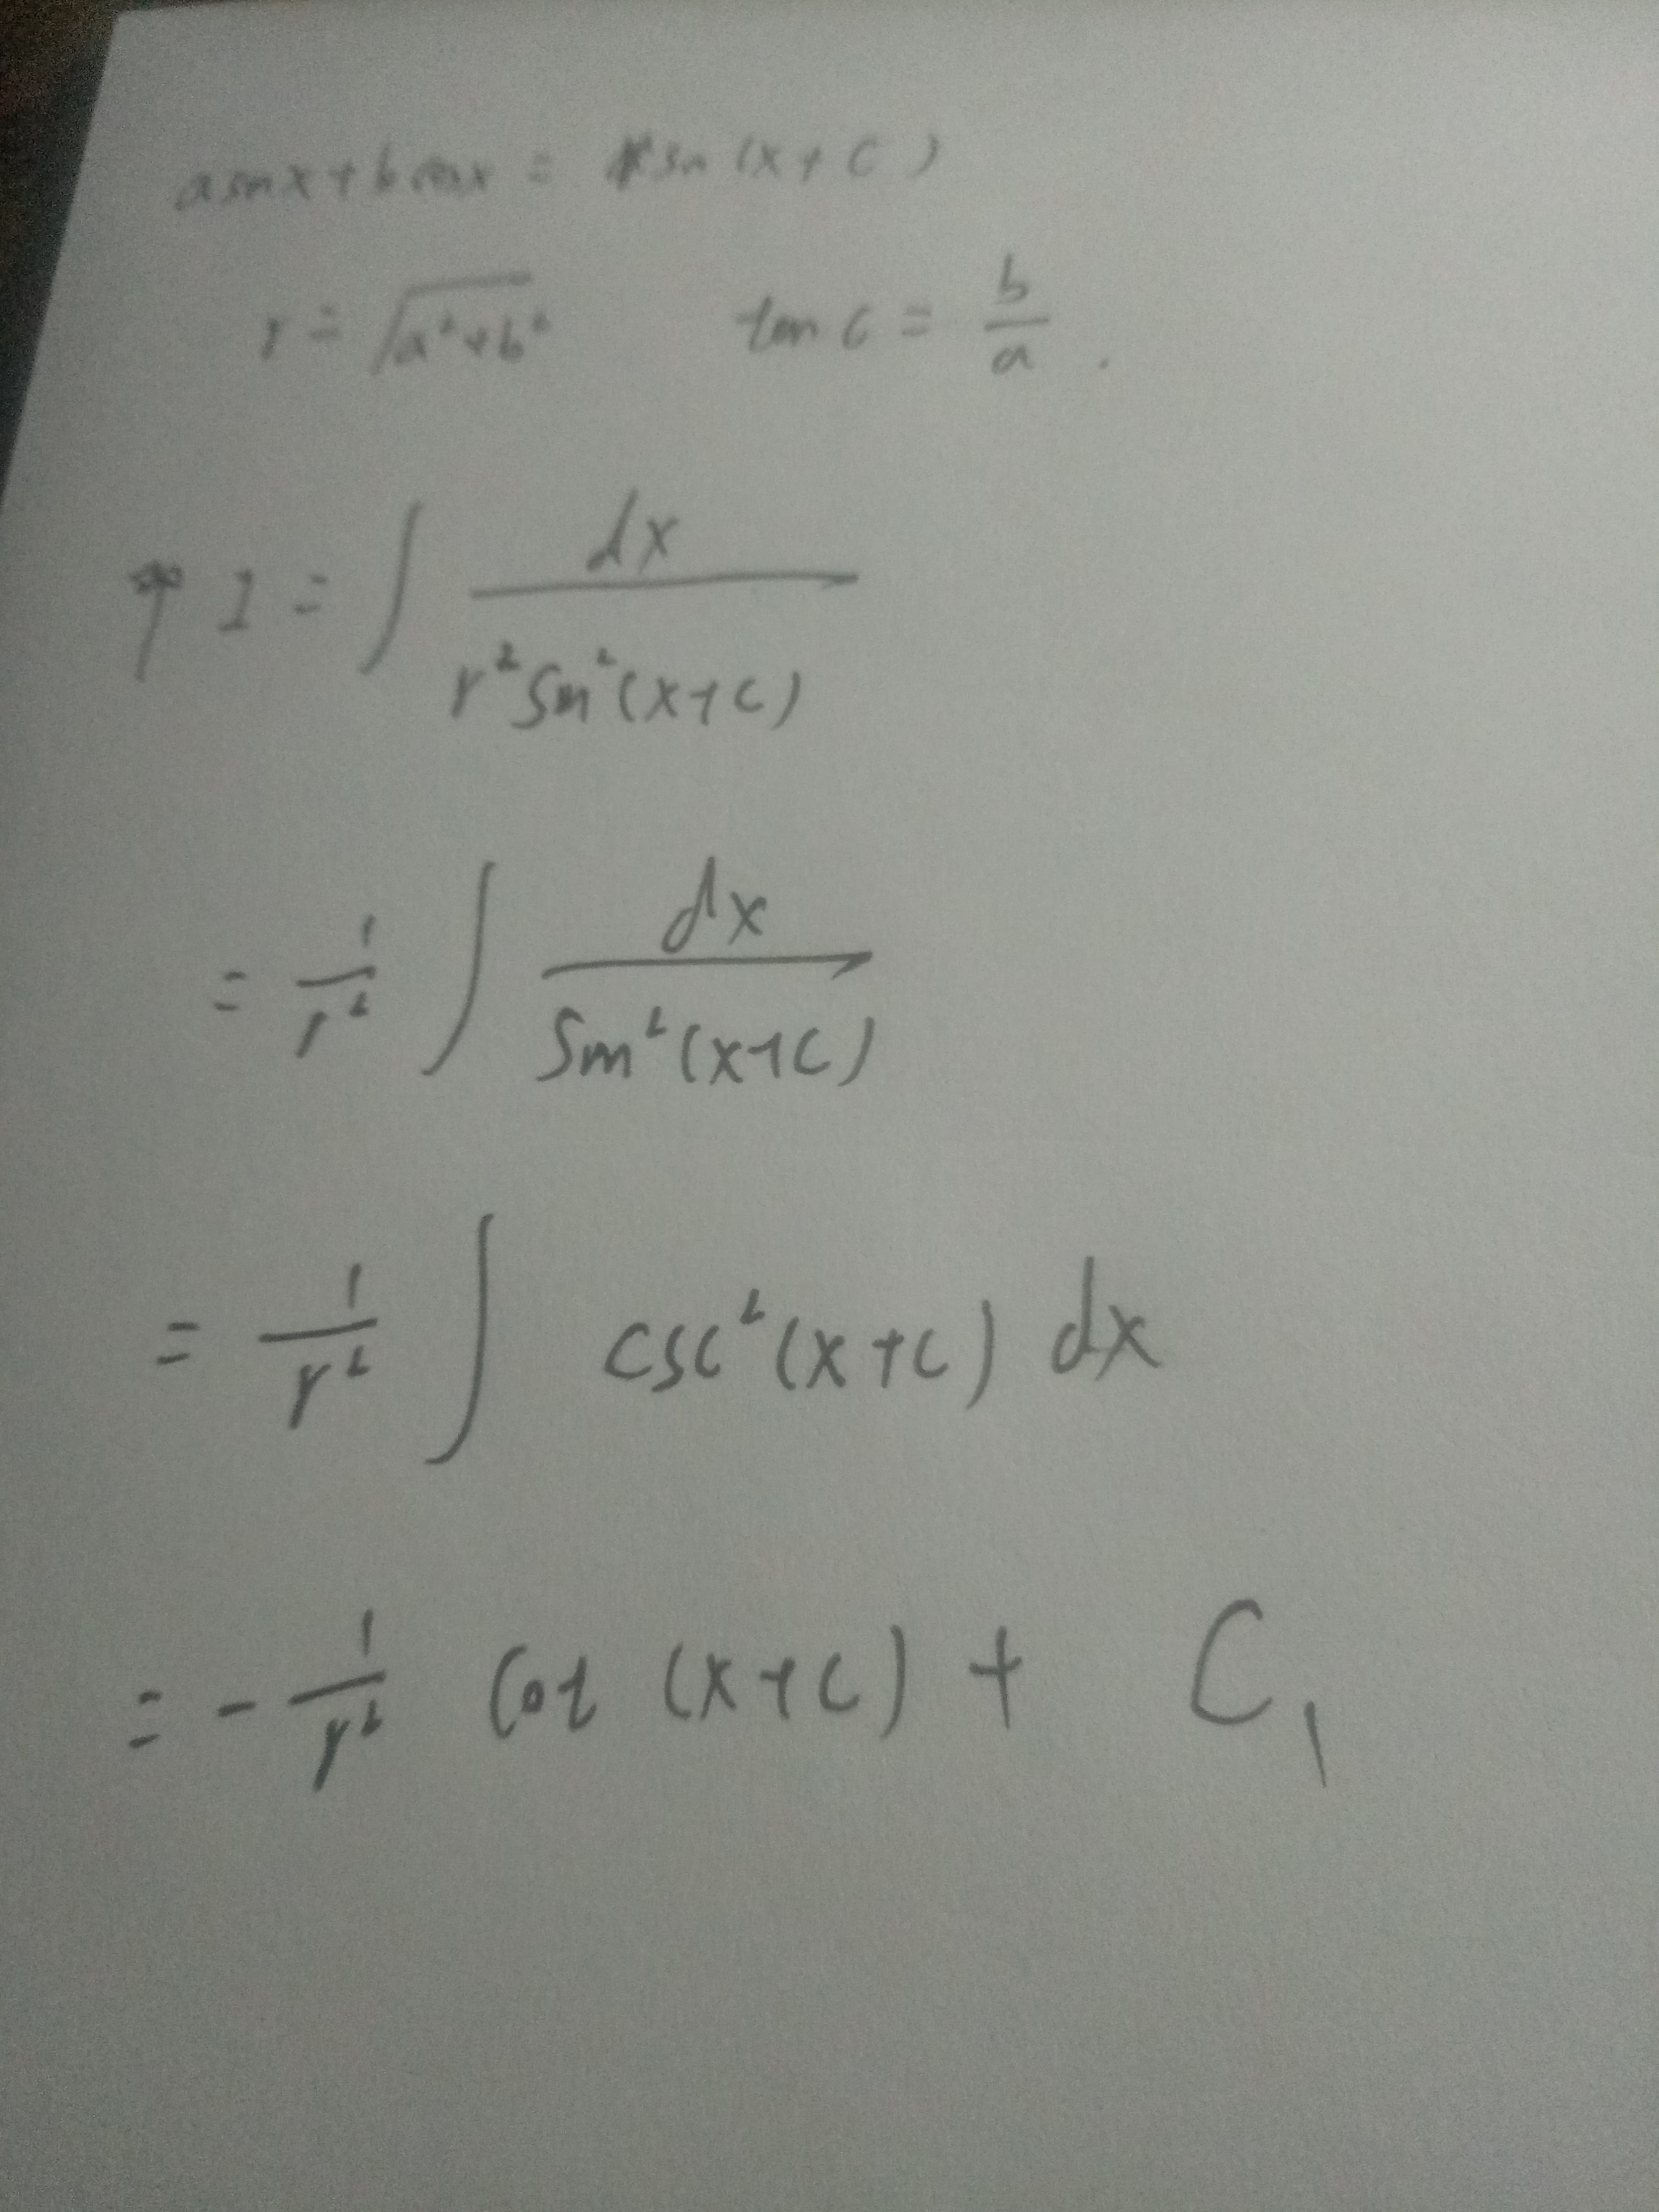 a sin x + b cos x = r sin (x + c)
r = √(a² + b²) tan c = b/a .
I = ∫ dx / (r² sin² (x+c))
= 1/r² ∫ dx / (sin² (x+c))
= 1/r² ∫ csc² (x+c) dx
= - 1/r² cot (x+c) + C₁